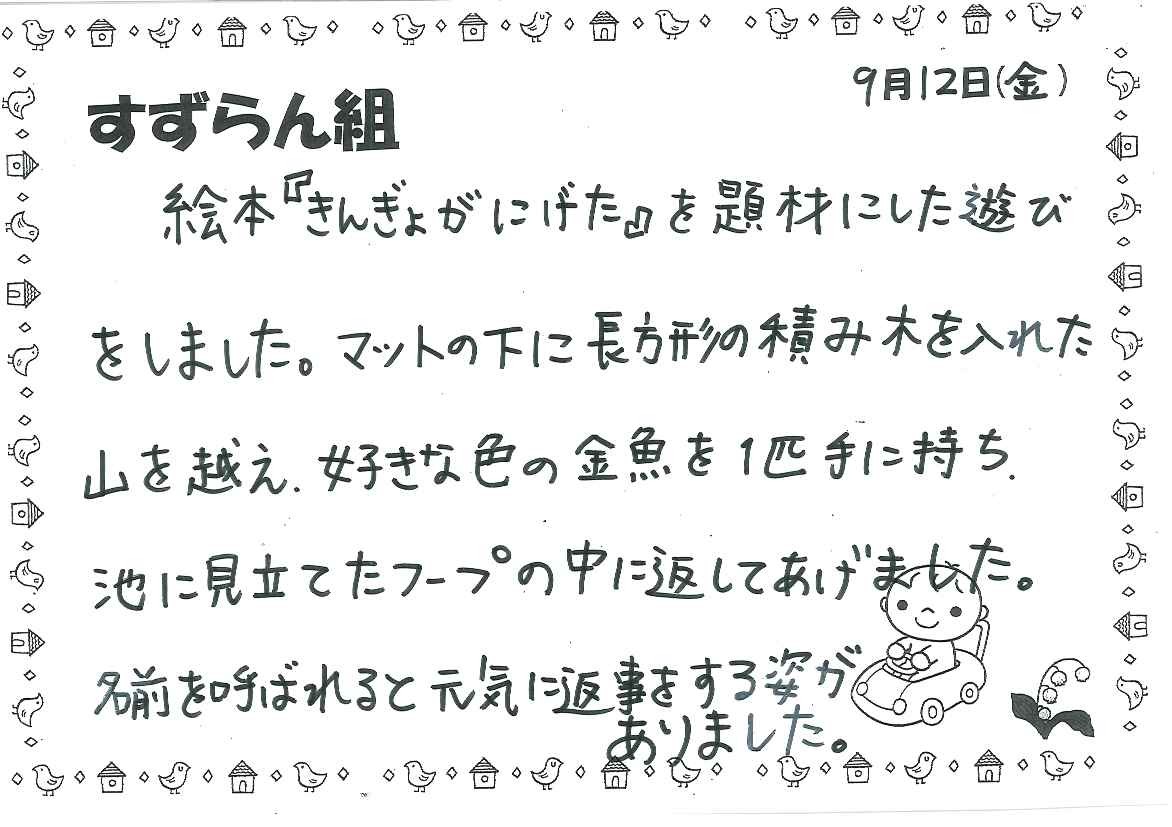 9月12日(金)
すずらん組
絵本『きんぎょがにげた』を題材にした遊び
をしました。マットの下に長方形の積み木を入れた
山を越え、好きな色の金魚を1匹手に持ち、
池に見立てたフープの中に返してあげました。
名前を呼ばれると元気に返事をする姿が
ありました。